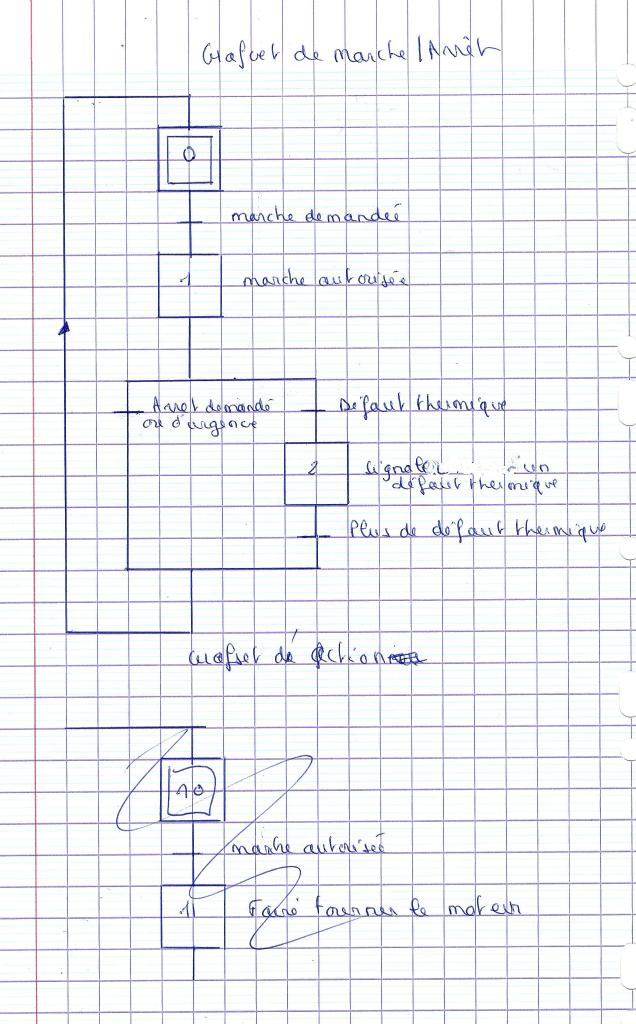 Grafcet de marche/Arrêt
0
marche demandée
1
marche autorisée
Arret demandé
ou d'urgence
Défaut thermique
2
un
défaut thermique
Plus de défaut thermique
Grafcet de Action
10
marche autorisée
11
Faire tourner le moteur